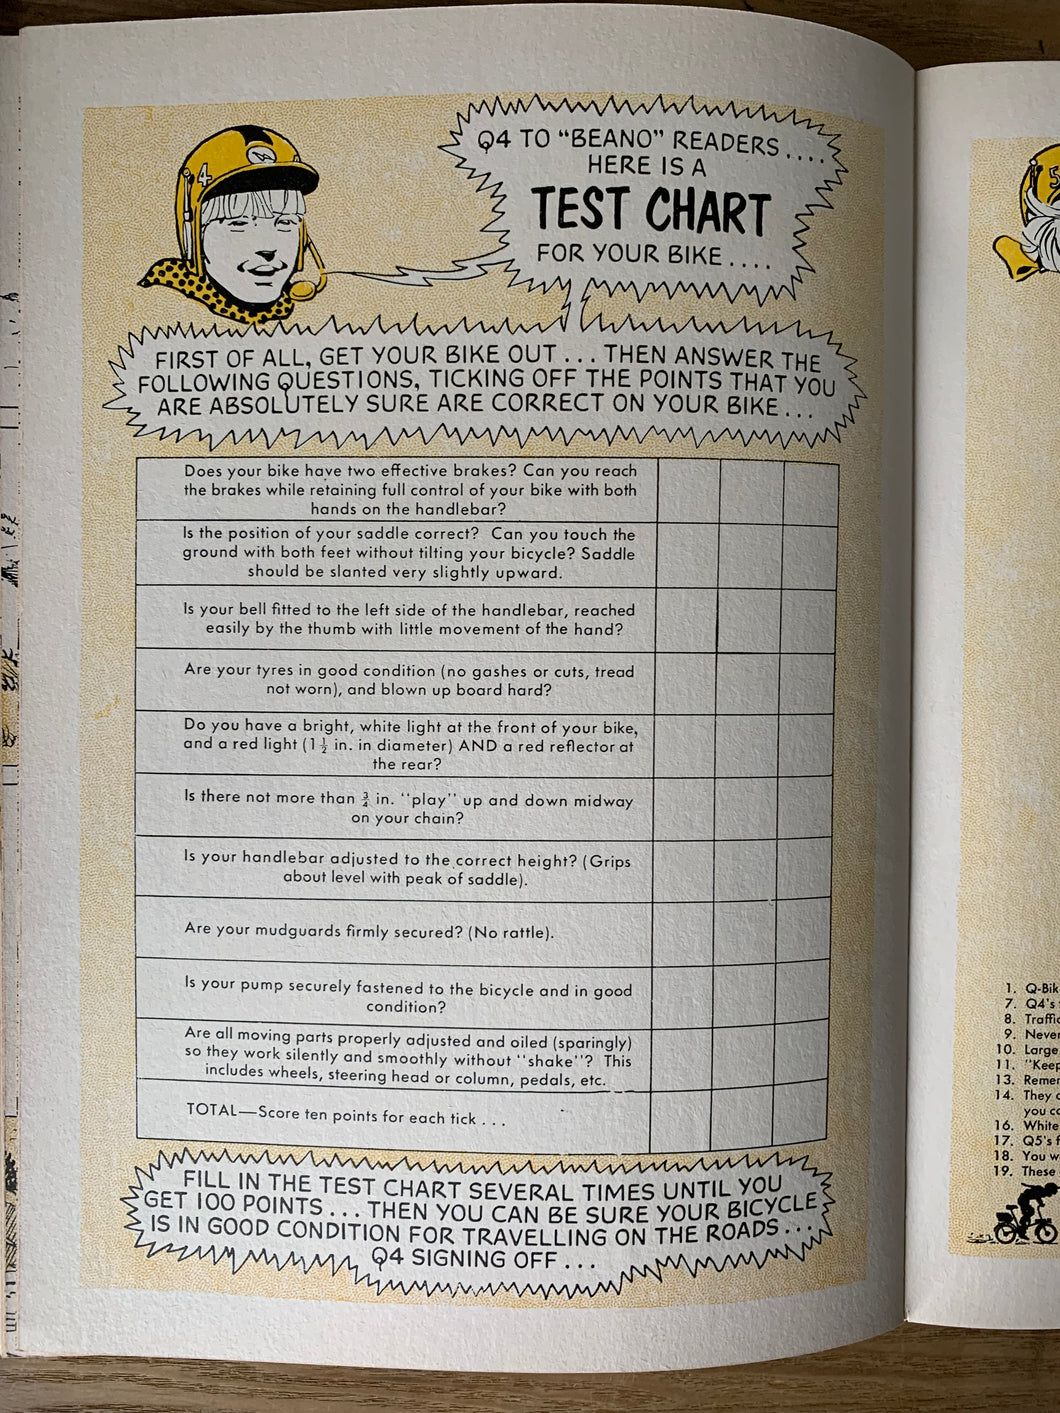 4
Q4 TO "BEANO" READERS....
HERE IS A
TEST CHART
FOR YOUR BIKE....
FIRST OF ALL, GET YOUR BIKE OUT ... THEN ANSWER THE
FOLLOWING QUESTIONS, TICKING OFF THE POINTS THAT YOU
ARE ABSOLUTELY SURE ARE CORRECT ON YOUR BIKE...
Does your bike have two effective brakes? Can you reach
the brakes while retaining full control of your bike with both
hands on the handlebar?
Is the position of your saddle correct? Can you touch the
ground with both feet without tilting your bicycle? Saddle
should be slanted very slightly upward.
Is your bell fitted to the left side of the handlebar, reached
easily by the thumb with little movement of the hand?
Are your tyres in good condition (no gashes or cuts, tread
not worn), and blown up board hard?
Do you have a bright, white light at the front of your bike,
and a red light (1½ in. in diameter) AND a red reflector at
the rear?
Is there not more than ¾ in. "play" up and down midway
on your chain?
Is your handlebar adjusted to the correct height? (Grips
about level with peak of saddle).
Are your mudguards firmly secured? (No rattle).
Is your pump securely fastened to the bicycle and in good
condition?
Are all moving parts properly adjusted and oiled (sparingly)
so they work silently and smoothly without "shake"? This
includes wheels, steering head or column, pedals, etc.
TOTAL—Score ten points for each tick . . .
FILL IN THE TEST CHART SEVERAL TIMES UNTIL YOU
GET 100 POINTS ... THEN YOU CAN BE SURE YOUR BICYCLE
IS IN GOOD CONDITION FOR TRAVELLING ON THE ROADS...
Q4 SIGNING OFF ...
5
1. Q-Bik
7. Q4's
8. Traffic
9. Never
10. Large
11. "Keep
13. Remem
14. They
you co
16. White
17. Q5's f
18. You w
19. These